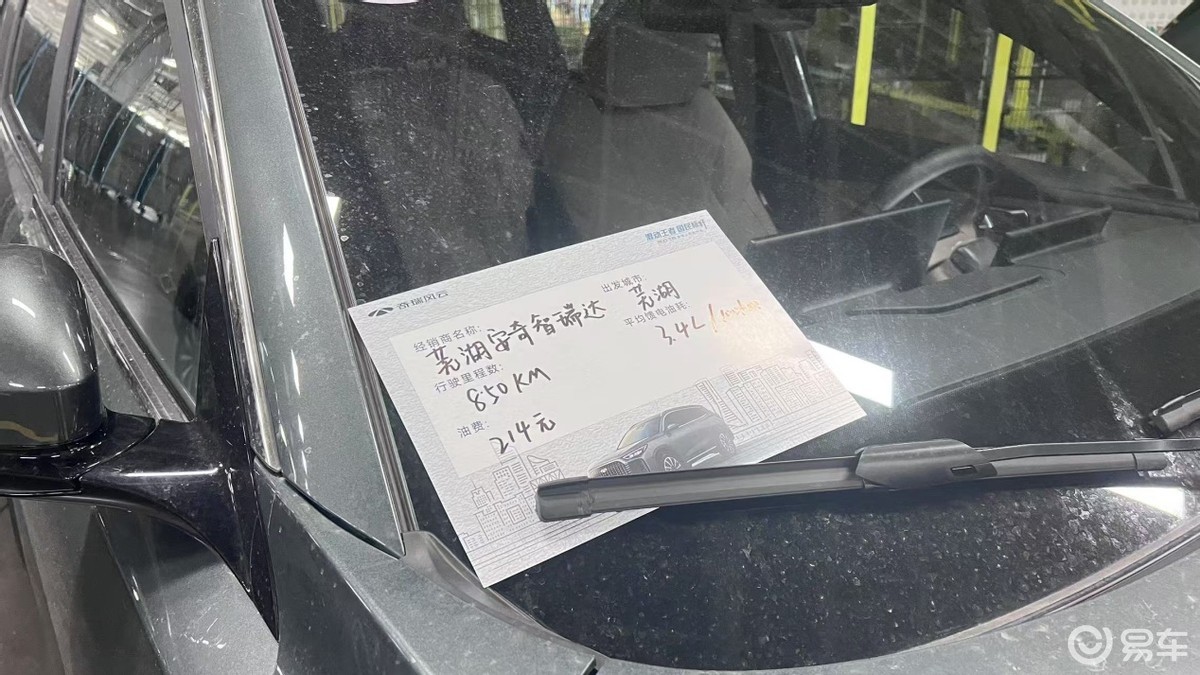 奇瑞风云
混动王者 国民标杆
经销商名称:
芜湖安奇智瑞达
出发城市:
芜湖
行驶里程数:
850KM
平均馈电油耗:
3.4L/100km
油费:
214元
易车